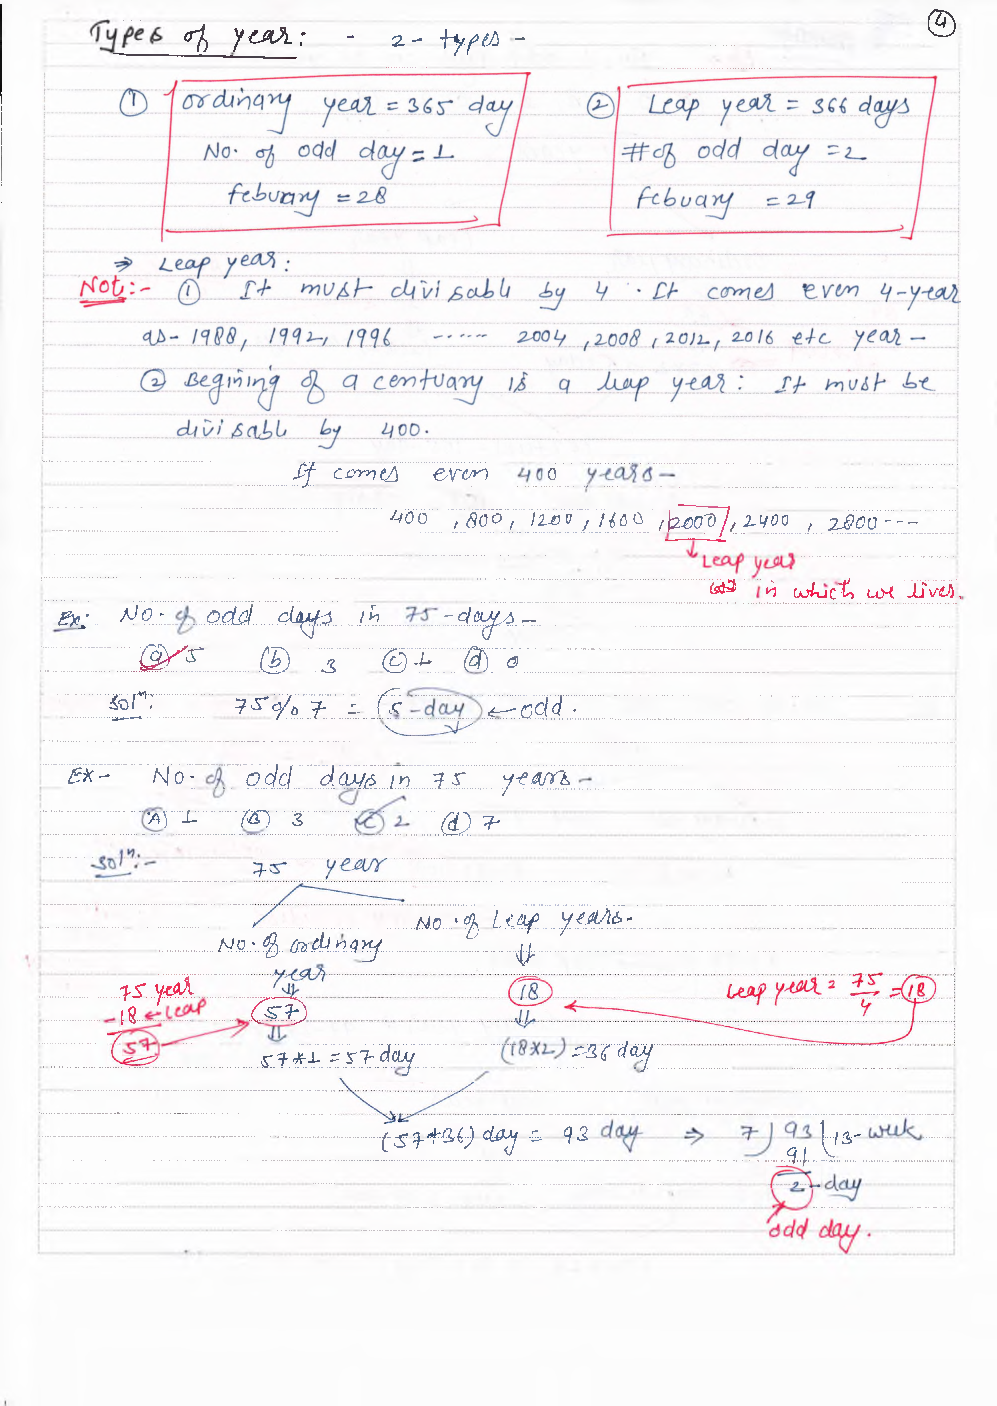 ④
Types of year: - 2 - types -
① ordinary year = 365 day
No. of odd day = 1
febuary = 28
② Leap year = 366 days
# of odd day = 2
Febuary = 29
⇒ Leap year:
Not:- ① It must divisable by 4. It comes even 4-year
as- 1988, 1992, 1996 ------ 2004, 2008, 2012, 2016 etc year -
② Begining of a centuary is a leap year: It must be
divisable by 400.
It comes even 400 years -
400, 800, 1200, 1600, 2000, 2400, 2800 ---
↓ Leap year
in which we lives.
Ex: No. of odd days in 75-days -
ⓐ 5 ⓑ 3 ⓒ 1 ⓓ 0
Solⁿ: 75 % 7 = 5-day ← odd.
EX- No. of odd days in 75 years -
Ⓐ 1 Ⓑ 3 Ⓒ 2 ⓓ 7
Solⁿ:- 75 year
No. of Leap years-
No. of ordinary
year
75 year
-18 ← leap
57
57
18
Leap year = 75/4 = 18
57*1 = 57 day
(18*2) = 36 day
(57+36) day = 93 day ⇒ 7) 93 (13-week
91
2-day
odd day.